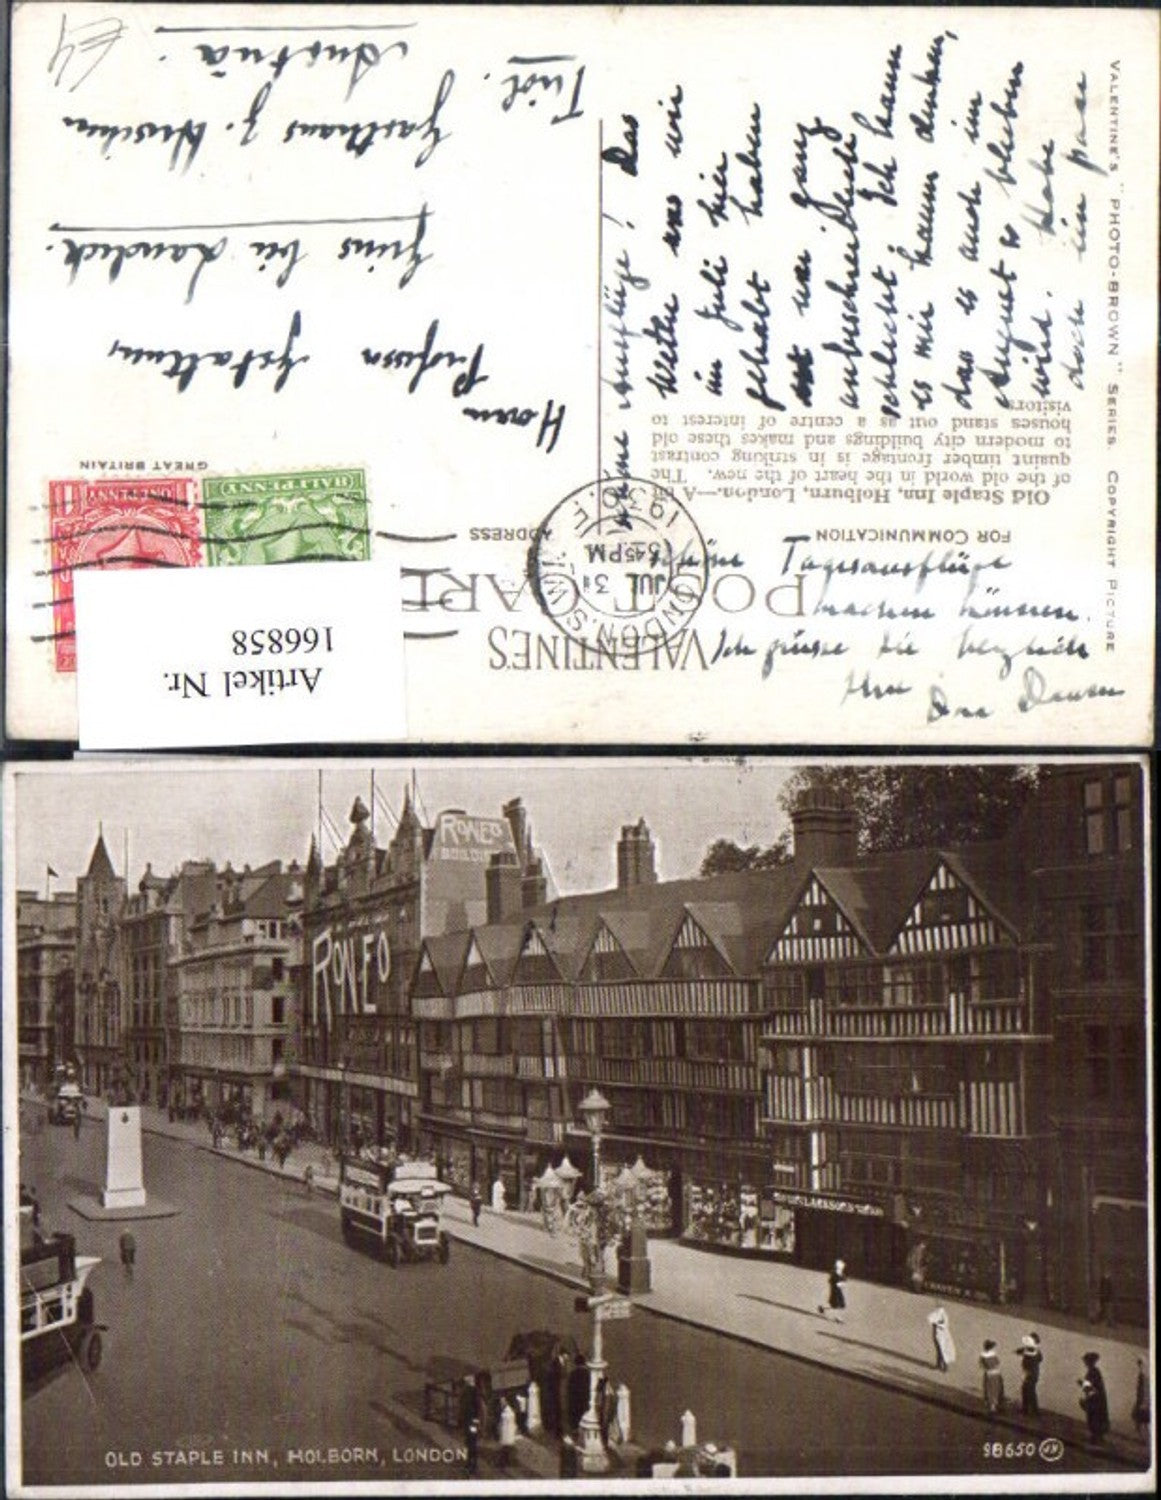 VALENTINE'S
POST CARD
FOR COMMUNICATION
ADDRESS
Old Staple Inn, Holborn, London.—A bit
of the old world in the heart of the new. The
quaint timber frontage is in striking contrast
to modern city buildings and makes these old
houses stand out as a centre of interest to
visitors
VALENTINE'S "PHOTO-BROWN" SERIES. COPYRIGHT PICTURE
GREAT BRITAIN
ONE PENNY
HALFPENNY
LONDON. S.W.
5 45 PM
JUL 31
1930
Ausflüge! Das
Wetter was wir
im Juli hier
gehabt haben
war ganz
unbeschreiblich
schlecht. Ich kann
es mir kaum denken,
dass es auch im
August so bleiben
wird. Habe
doch ein paar
schöne Tagesausflüge
machen können.
Ich grüsse Sie herzlich
Ihre
Herrn
Professor
Grins bei Landeck.
Gasthaus z.
Tirol.
Austria.
£4
Artikel Nr.
166858
RONEO
RONEO
OLD STAPLE INN, HOLBORN, LONDON
98650 JV